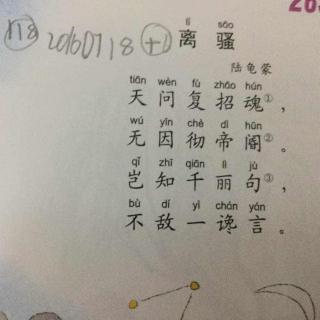 118 20160718 +1
lí sāo
离骚
陆龟蒙
tiān wèn fù zhāo hún
天问复招魂①，
wú yīn chè dì hūn
无因彻帝阍②。
qǐ zhī qiān lì jù
岂知千丽句③，
bù dí yì chán yán
不敌一谗言。